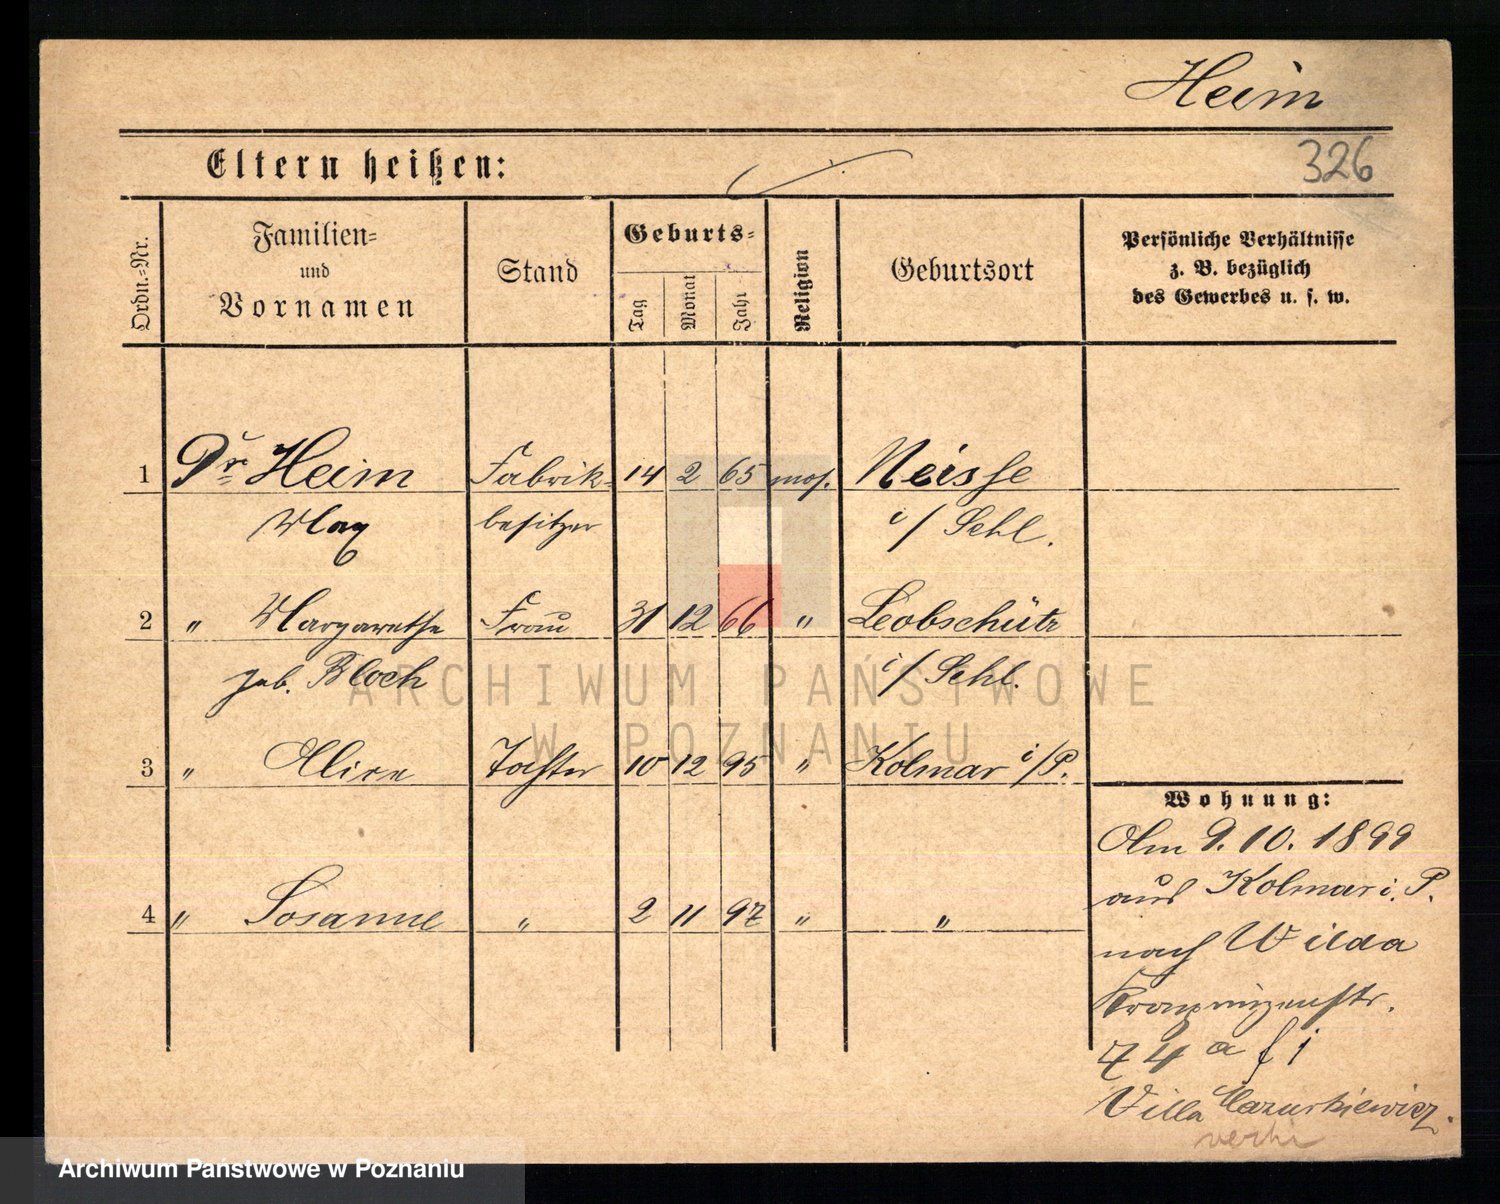 Heim
326
Eltern heißen:
Ordn.-Nr.
Familien- und Vornamen
Stand
Geburts-
Tag
Monat
Jahr
Religion
Geburtsort
Persönliche Verhältnisse
z. B. bezüglich
des Gewerbes u. s. w.
1 Dr Heim Fabrik- 14 2 65 mos. Neisse
Max besitzer i/ Schl.
2 " Margarethe Frau 31 12 66 " Leobschütz
geb. Bloch i/ Schl.
3 " Alice Tochter 10 12 95 " Kolmar i/P.
4 " Sosanne " 2 11 97 " "
Wohnung:
Am 9.10.1899
aus Kolmar i. P.
nach Wilda
Kronprinzenstr.
74 a
Villa Mazurkiewicz.
ARCHIWUM PAŃSTWOWE
W POZNANIU
Archiwum Państwowe w Poznaniu